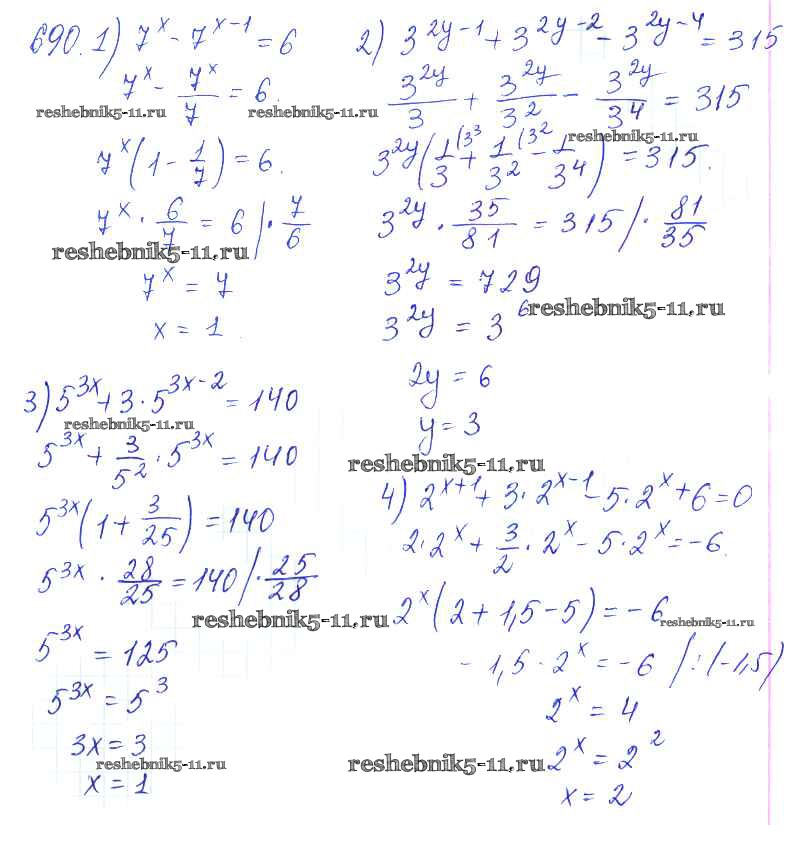 690. 1) 7^x - 7^(x-1) = 6
7^x - 7^x/7 = 6.
reshebnik5-11.ru
7^x (1 - 1/7) = 6.
7^x · 6/7 = 6 / · 7/6
reshebnik5-11.ru
7^x = 7
x = 1.
2) 3^(2y-1) + 3^(2y-2) - 3^(2y-4) = 315
3^(2y)/3 + 3^(2y)/3^2 - 3^(2y)/3^4 = 315
reshebnik5-11.ru
reshebnik5-11.ru
3^(2y) (1/3 (3^3 + 1/3^2 (3^2 - 1/3^4) = 315.
3^(2y) · 35/81 = 315 / · 81/35
3^(2y) = 729
3^(2y) = 3^6
reshebnik5-11.ru
2y = 6
y = 3
reshebnik5-11.ru
3) 5^(3x) + 3 · 5^(3x-2) = 140
reshebnik5-11.ru
5^(3x) + 3/5^2 · 5^(3x) = 140
5^(3x) (1 + 3/25) = 140
5^(3x) · 28/25 = 140 / · 25/28
reshebnik5-11.ru
5^(3x) = 125
5^(3x) = 5^3
3x = 3
reshebnik5-11.ru
x = 1
4) 2^(x+1) + 3 · 2^(x-1) - 5 · 2^x + 6 = 0
2 · 2^x + 3/2 · 2^x - 5 · 2^x = -6.
2^x (2 + 1,5 - 5) = -6
reshebnik5-11.ru
- 1,5 · 2^x = -6 / : (-1,5)
2^x = 4
reshebnik5-11.ru
2^x = 2^2
x = 2